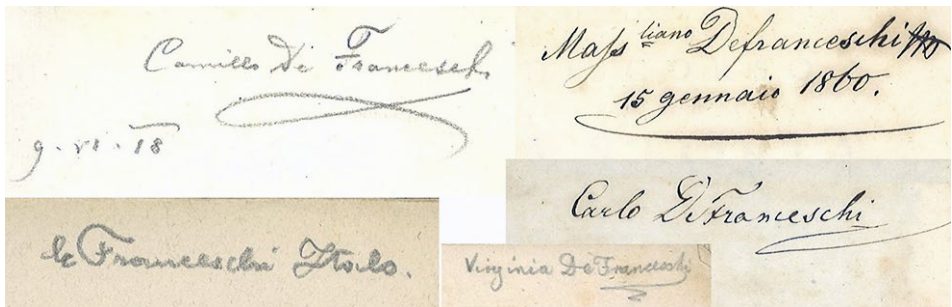 Camillo De Franceschi
9. VI. 18
Mass.liano Defranceschi
15 gennaio 1860.
Carlo DeFranceschi
de Franceschi Italo.
Virginia DeFranceschi